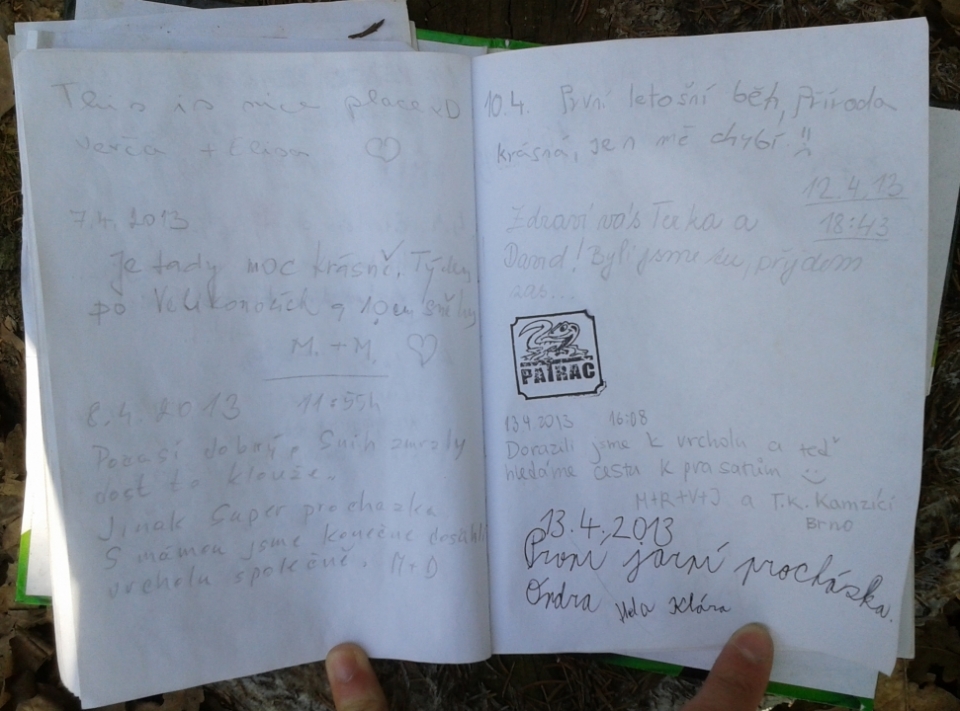 This is nice place :D
Verča + Elisa ♡
7.4. 2013
Je tady moc krásně. Týden
po Velikonocích a 10cm sněhu
M. + M. ♡
8.4. 2013 11:55h
Počasí dobrý. Sníh zmrzlý
dost to klouže.
Jinak super procházka
S mámou jsme konečně dosáhli
vrcholu společně. M+D
10.4. První letošní běh, příroda
krásná, jen mě chybí !!
12.4.13
18:43
Zdraví vás Terka a
David! Byli jsme tu, přijdem
zas...
PATRAC
13.4.2013 16:08
Dorazili jsme k vrcholu a teď
hledáme cestu k prasatům :)
M+R+V+J a T.K. Kamzíci
Brno
13.4.2013
První jarní procházka.
Ondra Klára